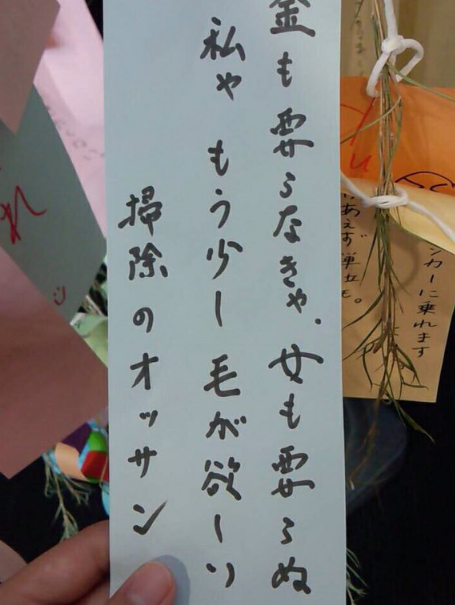 金も要らなきゃ、女も要らぬ
私ゃ もう少し 毛が欲しい
掃除のオッサン
あえず単位を。
ンカーに乗れます